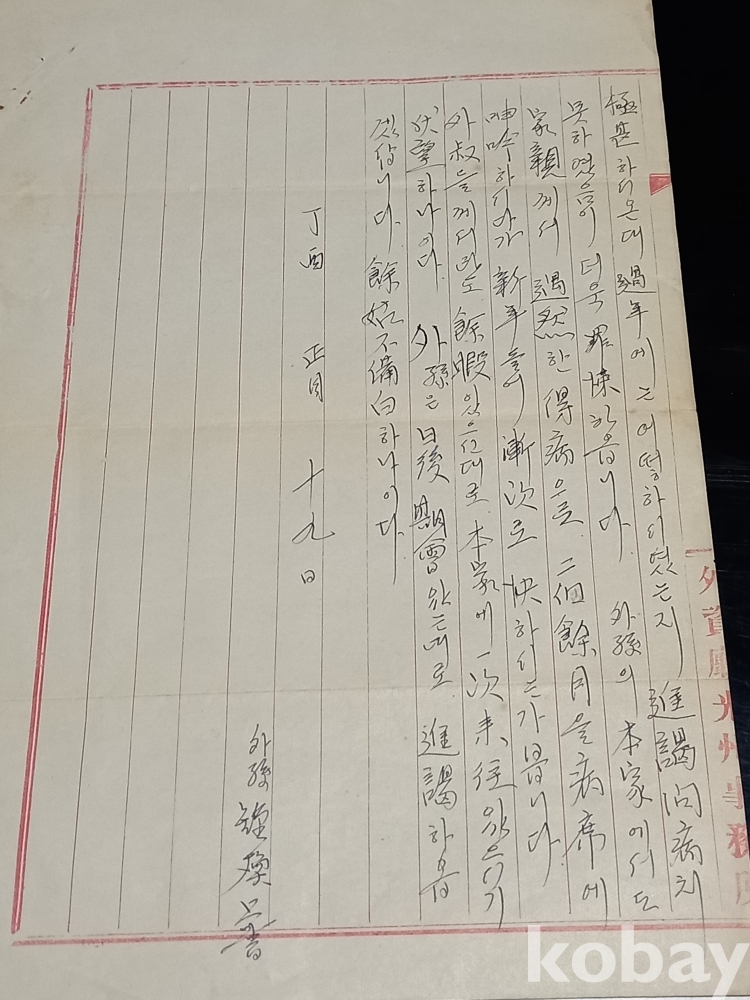 外資廳光州事務所
極甚하더온대 過年에는 어떵하시였는지 進謁问病치
못하였음이 더욱 罪悚하옵니다. 外孫의 本家에서도
家親께서 過然한 得病으로 二個餘月을 病席에
呻吟하시다가 新年들어 漸次로 快하시는가 봅니다.
外叔들께서라도 餘暇있으신대로 本家에 一次来往있으시기
伏望하나이다. 外孫은 日後 期會있는대로 進謁하옵
겠습니다. 餘姑不備白하나이다.
丁酉 正月 十九日
外孫 煥 上書
kobay